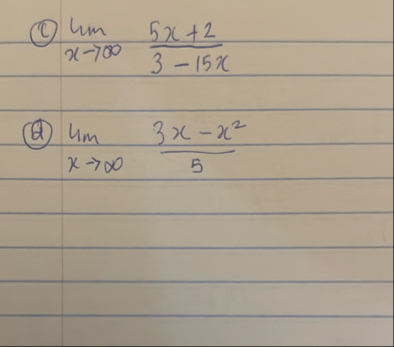 (c) lim x→∞ (5x + 2)/(3 − 15x)
(d) lim x→∞ (3x − x²)/5